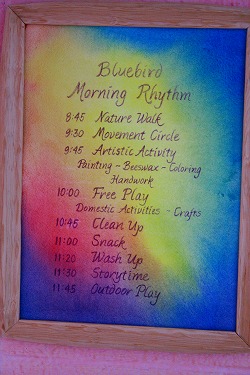 Bluebird
Morning Rhythm
8:45 Nature Walk
9:30 Movement Circle
9:45 Artistic Activity
Painting - Beeswax - Coloring
Handwork
10:00 Free Play
Domestic Activities - Crafts
10:45 Clean Up
11:00 Snack
11:20 Wash Up
11:30 Storytime
11:45 Outdoor Play